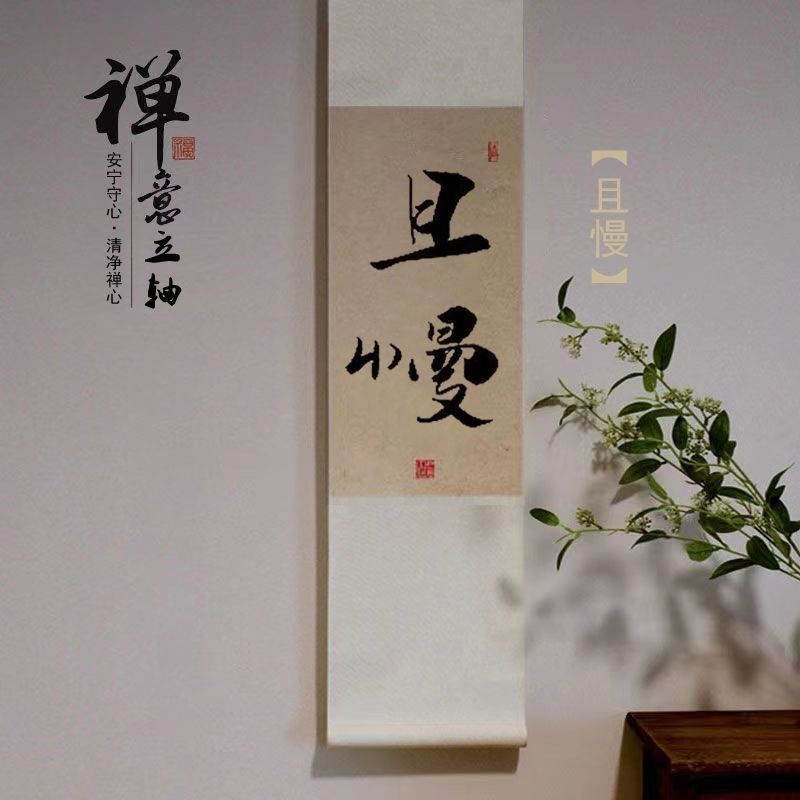 禅意立轴
安宁守心·清净禅心
且慢
【且慢】